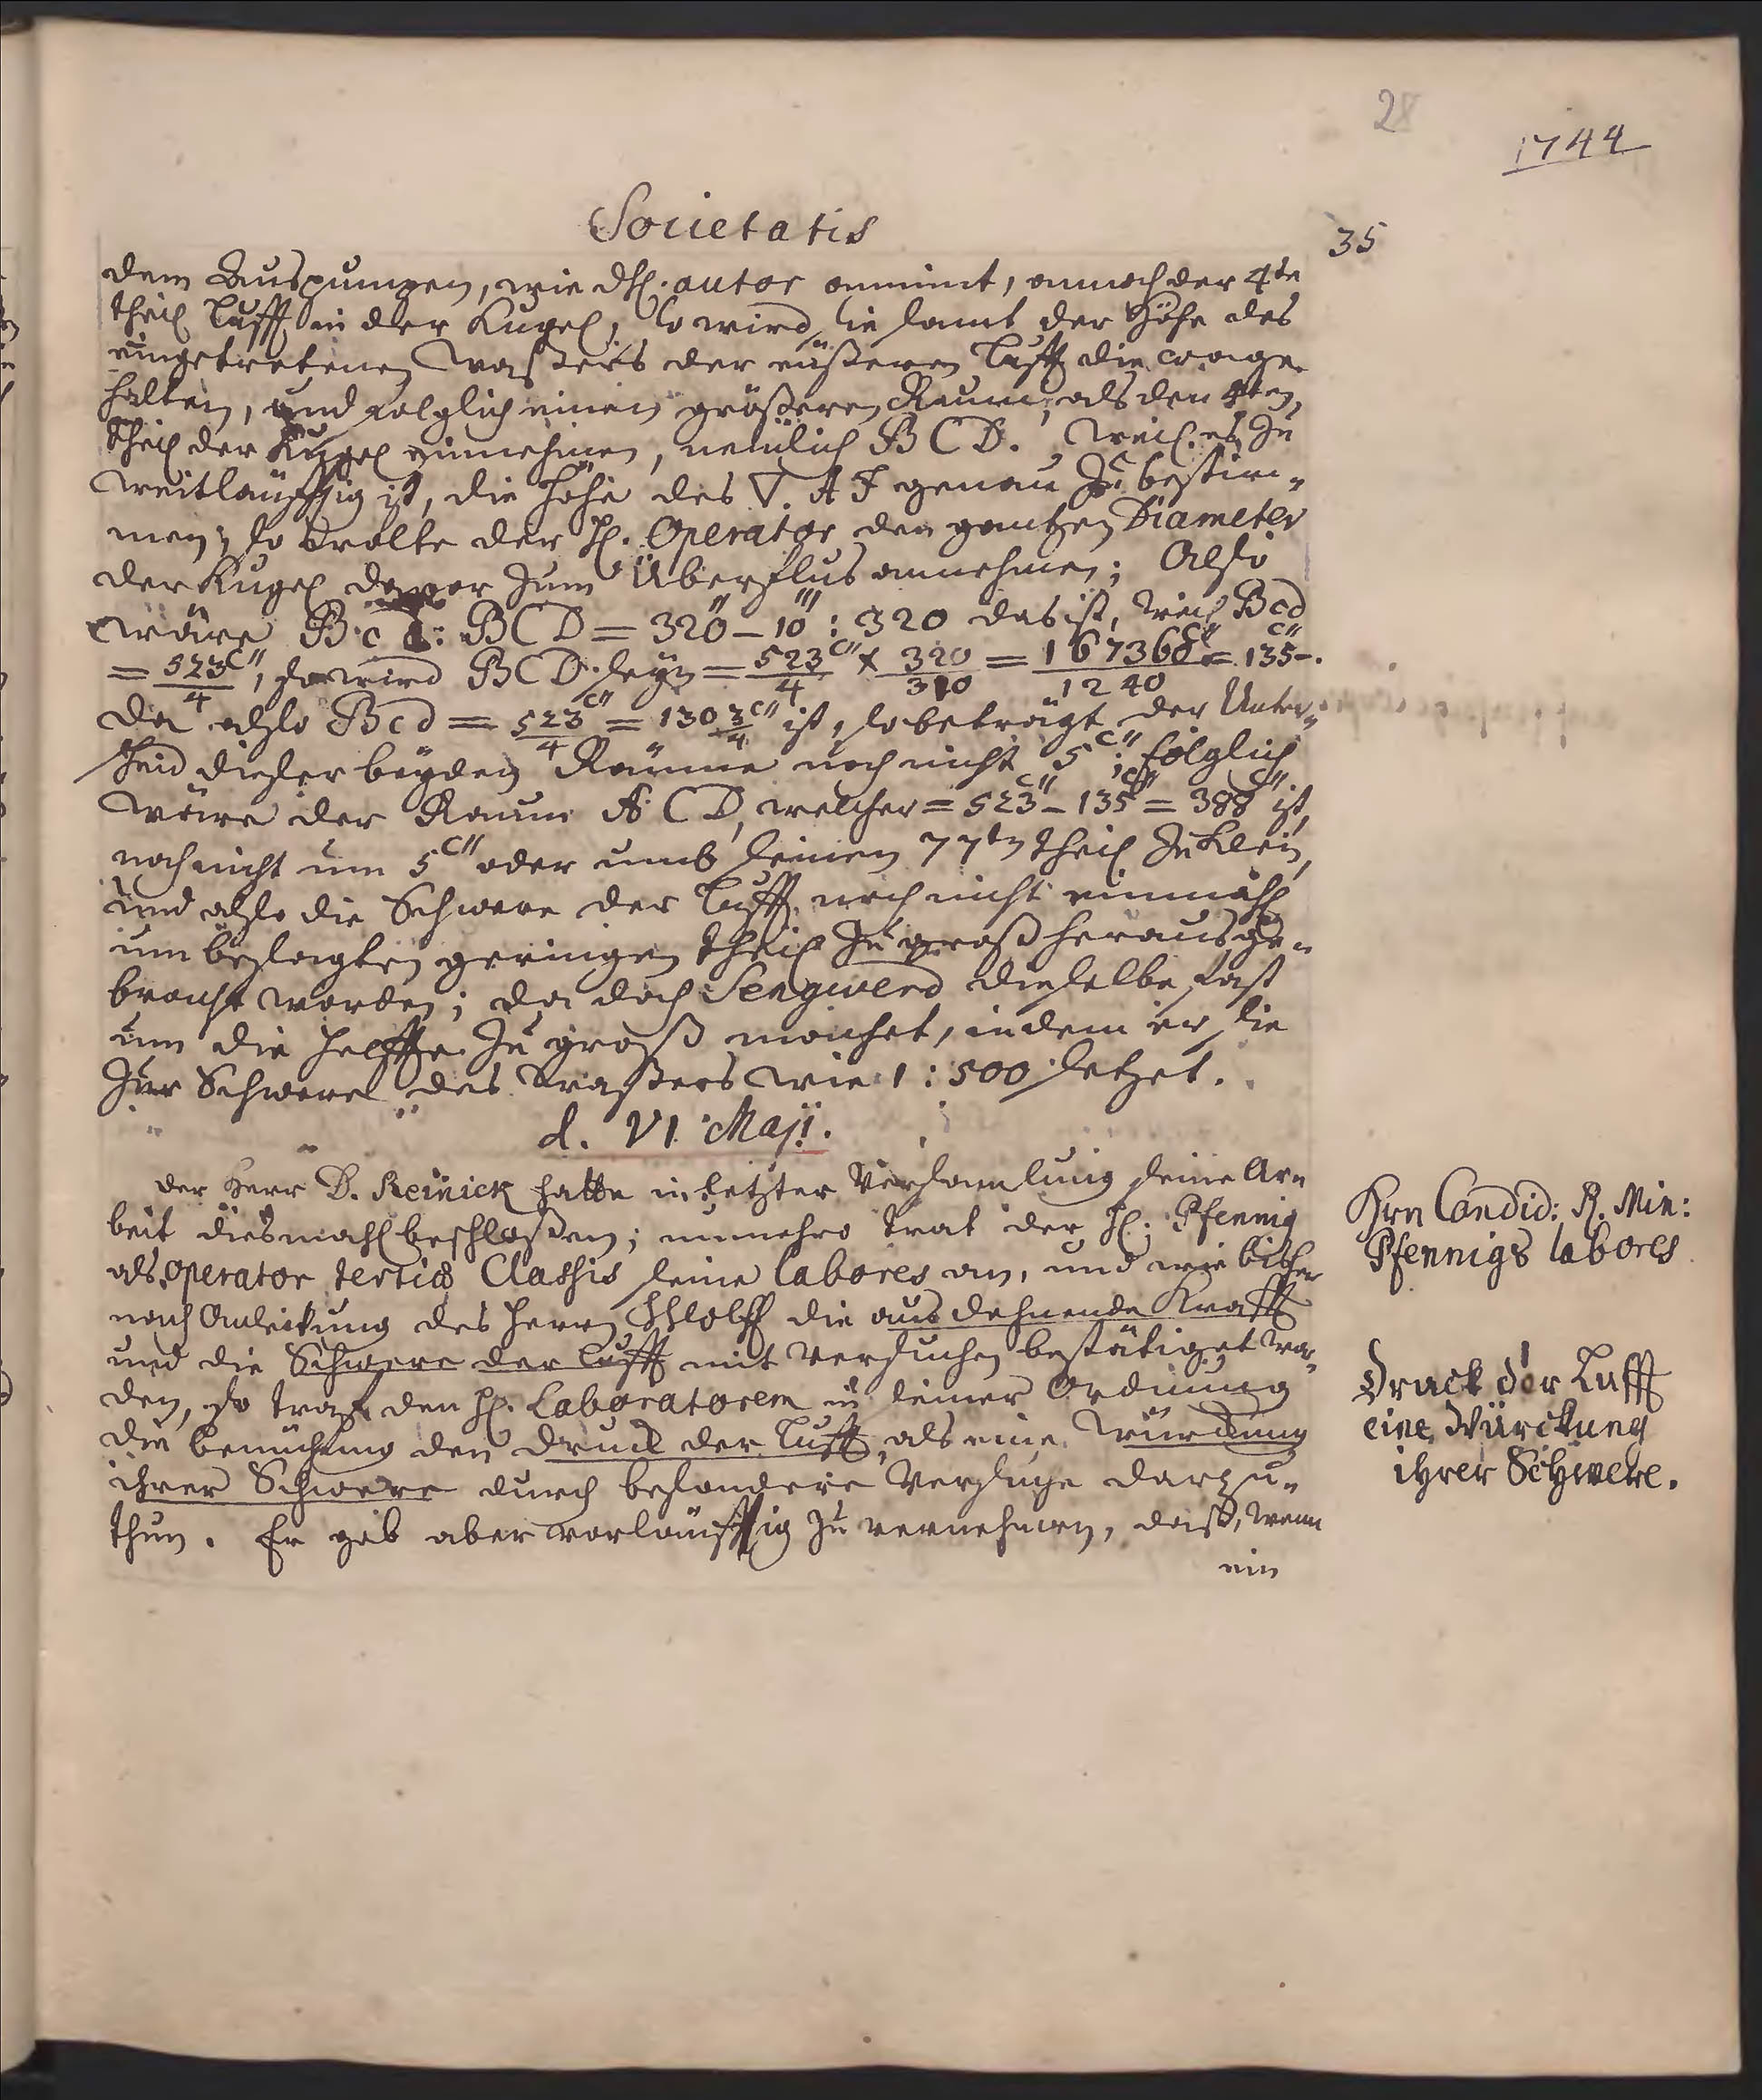 28
1744
Societatis
35
dem Auspumpen, wie dH. autor annimt, annoch der 4te
theil Lufft in der Kugel, so wird sie samt der Höhe des
eingetretenen Waßers der eüßeren Lufft die wage
halten, und folglich einen größeren Raum, als den 4ten
Theil der Kugel einnehmen, nemlich BCD. Weil es zu
weitläufftig ist, die Höhe des ∇. AF genau zu bestim-
men, so wolte der H. Operator den gantzen Diameter
der Kugel davor zum Überflus annehmen; Also
wäre B c d: BCD = 320'' – 10''' : 320 das ist, weil Bcd
= 523/4 c'', so wird BCD seyn = 523/4 c'' x 320/310 = 167360/1240 c'' = 135 c'' –.
Da also Bcd = 523/4 c'' = 130 3/4 c'' ist, so beträgt der Unter-
scheid dieser beyden Räume noch nicht 5 c''; folglich
wäre der Raum A CD, welcher = 523 c'' – 135 c'' = 388 c'' ist,
noch nicht um 5 c'' oder umb seinen 77ten theil zu klein,
und also die Schwere der Lufft noch nicht einmahl
um besagten geringen theil zu groß herausge-
bracht worden; da doch Sengwerd dieselbe fast
um die Helffte zu groß machet, indem er sie
zur Schwere des Waßers wie 1 : 500 setzet.
d. VI. Maji.
der Herr D. Reinick hatte in letzter Versamlung seine Ar-
beit diesmahl beschloßen; nunmehro trat der H. Pfennig
als operator tertiae Classis seine labores an, und wie bisher
nach Anleitung des Herrn Wolff die ausdehnende Krafft
und die Schwere der Lufft mit Versuchen bestätiget wor-
den, so traf den H. Laboratorem in seiner Ordnung
die bemühung den Druck der Lufft, als eine Würckung
ihrer Schwere durch besondere Versuche darzu-
thun. Er gab aber vorläufftig zu vernehmen, daß, wenn
ein
Hrn Candid: R. Min:
Pfennigs labores
Druck der Lufft
eine Würckung
ihrer Schwere.